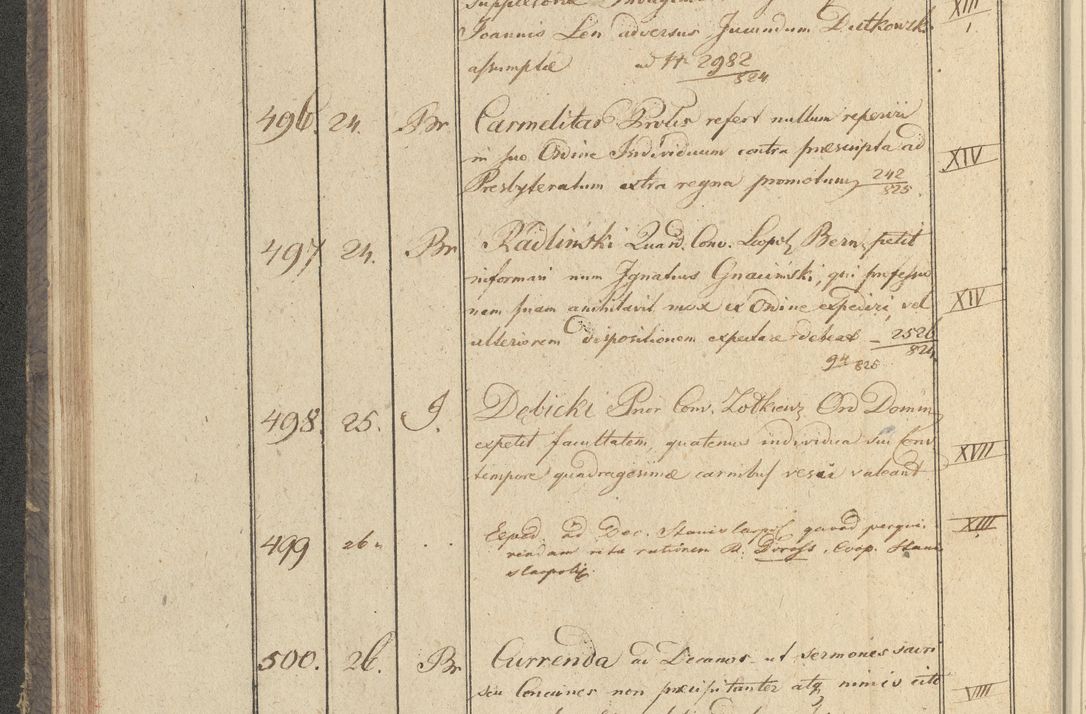 Joannis Len adversus Jucundum Dutkowski
XIII
assumptæ ad # 2982/824
496. 24. Br. Carmelitar Prolis refert nullum reperiri
in suo Ordine Individuum contra præscripta ad
XIV
Presbyteratum extra regna promotum 242/825.
497 24. Br Radliński Quard. Conv. Leopol Bern. petit
informari num Ignatius Gnaiński, qui professio
nem suam annihilavit mox ex Ordine expediri, vel
XIV
ulteriorem dispositionem expectare debeat – 2526/824
94/825
498. 25. J. Dębicki Prior Conv. Zolkiew. Ord Domin
expetit facultatem, quatenus individua sui Conv
XVIII
tempore quadragesimæ carnibus vesci valeant
499 26. . . Exped ad Dec. Stanislaopol quoad perqui
XIII
rendam rite rationem R. Doross, Coop. Stani
slaopoli.
500. 26. Br Currenda ad Decanos ut sermones sacri
seu Conciones non præcipitanter atq nimis cito
VIII